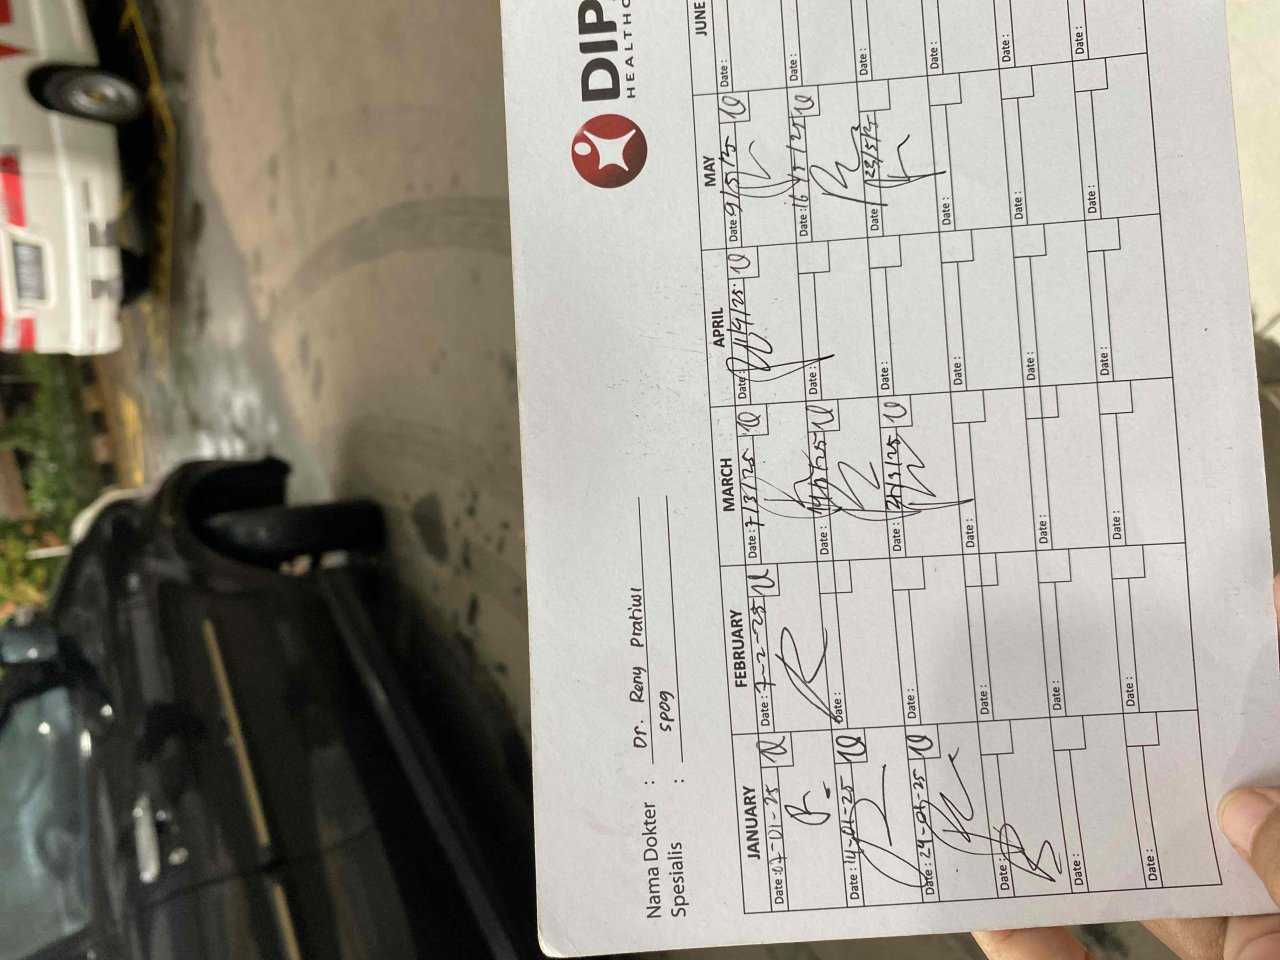 DIP
HEALTHC
Nama Dokter : Dr. Reny Pratiwi
Spesialis : SPOG
JANUARY FEBRUARY MARCH APRIL MAY JUNE
Date: 07-01-25 Date: 7-2-25 Date: 7/3/25 Date: Date: 9/5/25 Date:
Date: 14-01-25 Date: Date: Date: Date: 16/5/25 Date:
Date: 24-01-25 Date: Date: 21/3/25 Date: Date: 23/5/25 Date:
Date: Date: Date: Date: Date: Date:
Date: Date: Date: Date: Date: Date:
Date: Date: Date: Date: Date: Date: